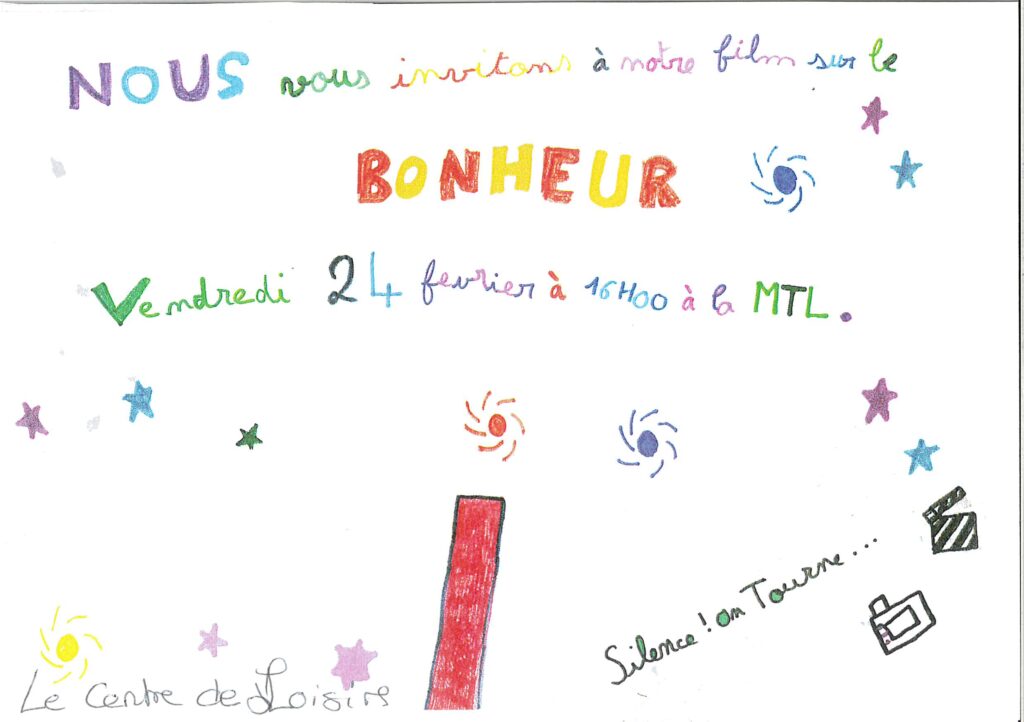 NOUS vous invitons à notre film sur le
BONHEUR
Vendredi 24 fevrier à 16H00 à la MTL.
Silence ! on Tourne...
Le Centre de Loisirs